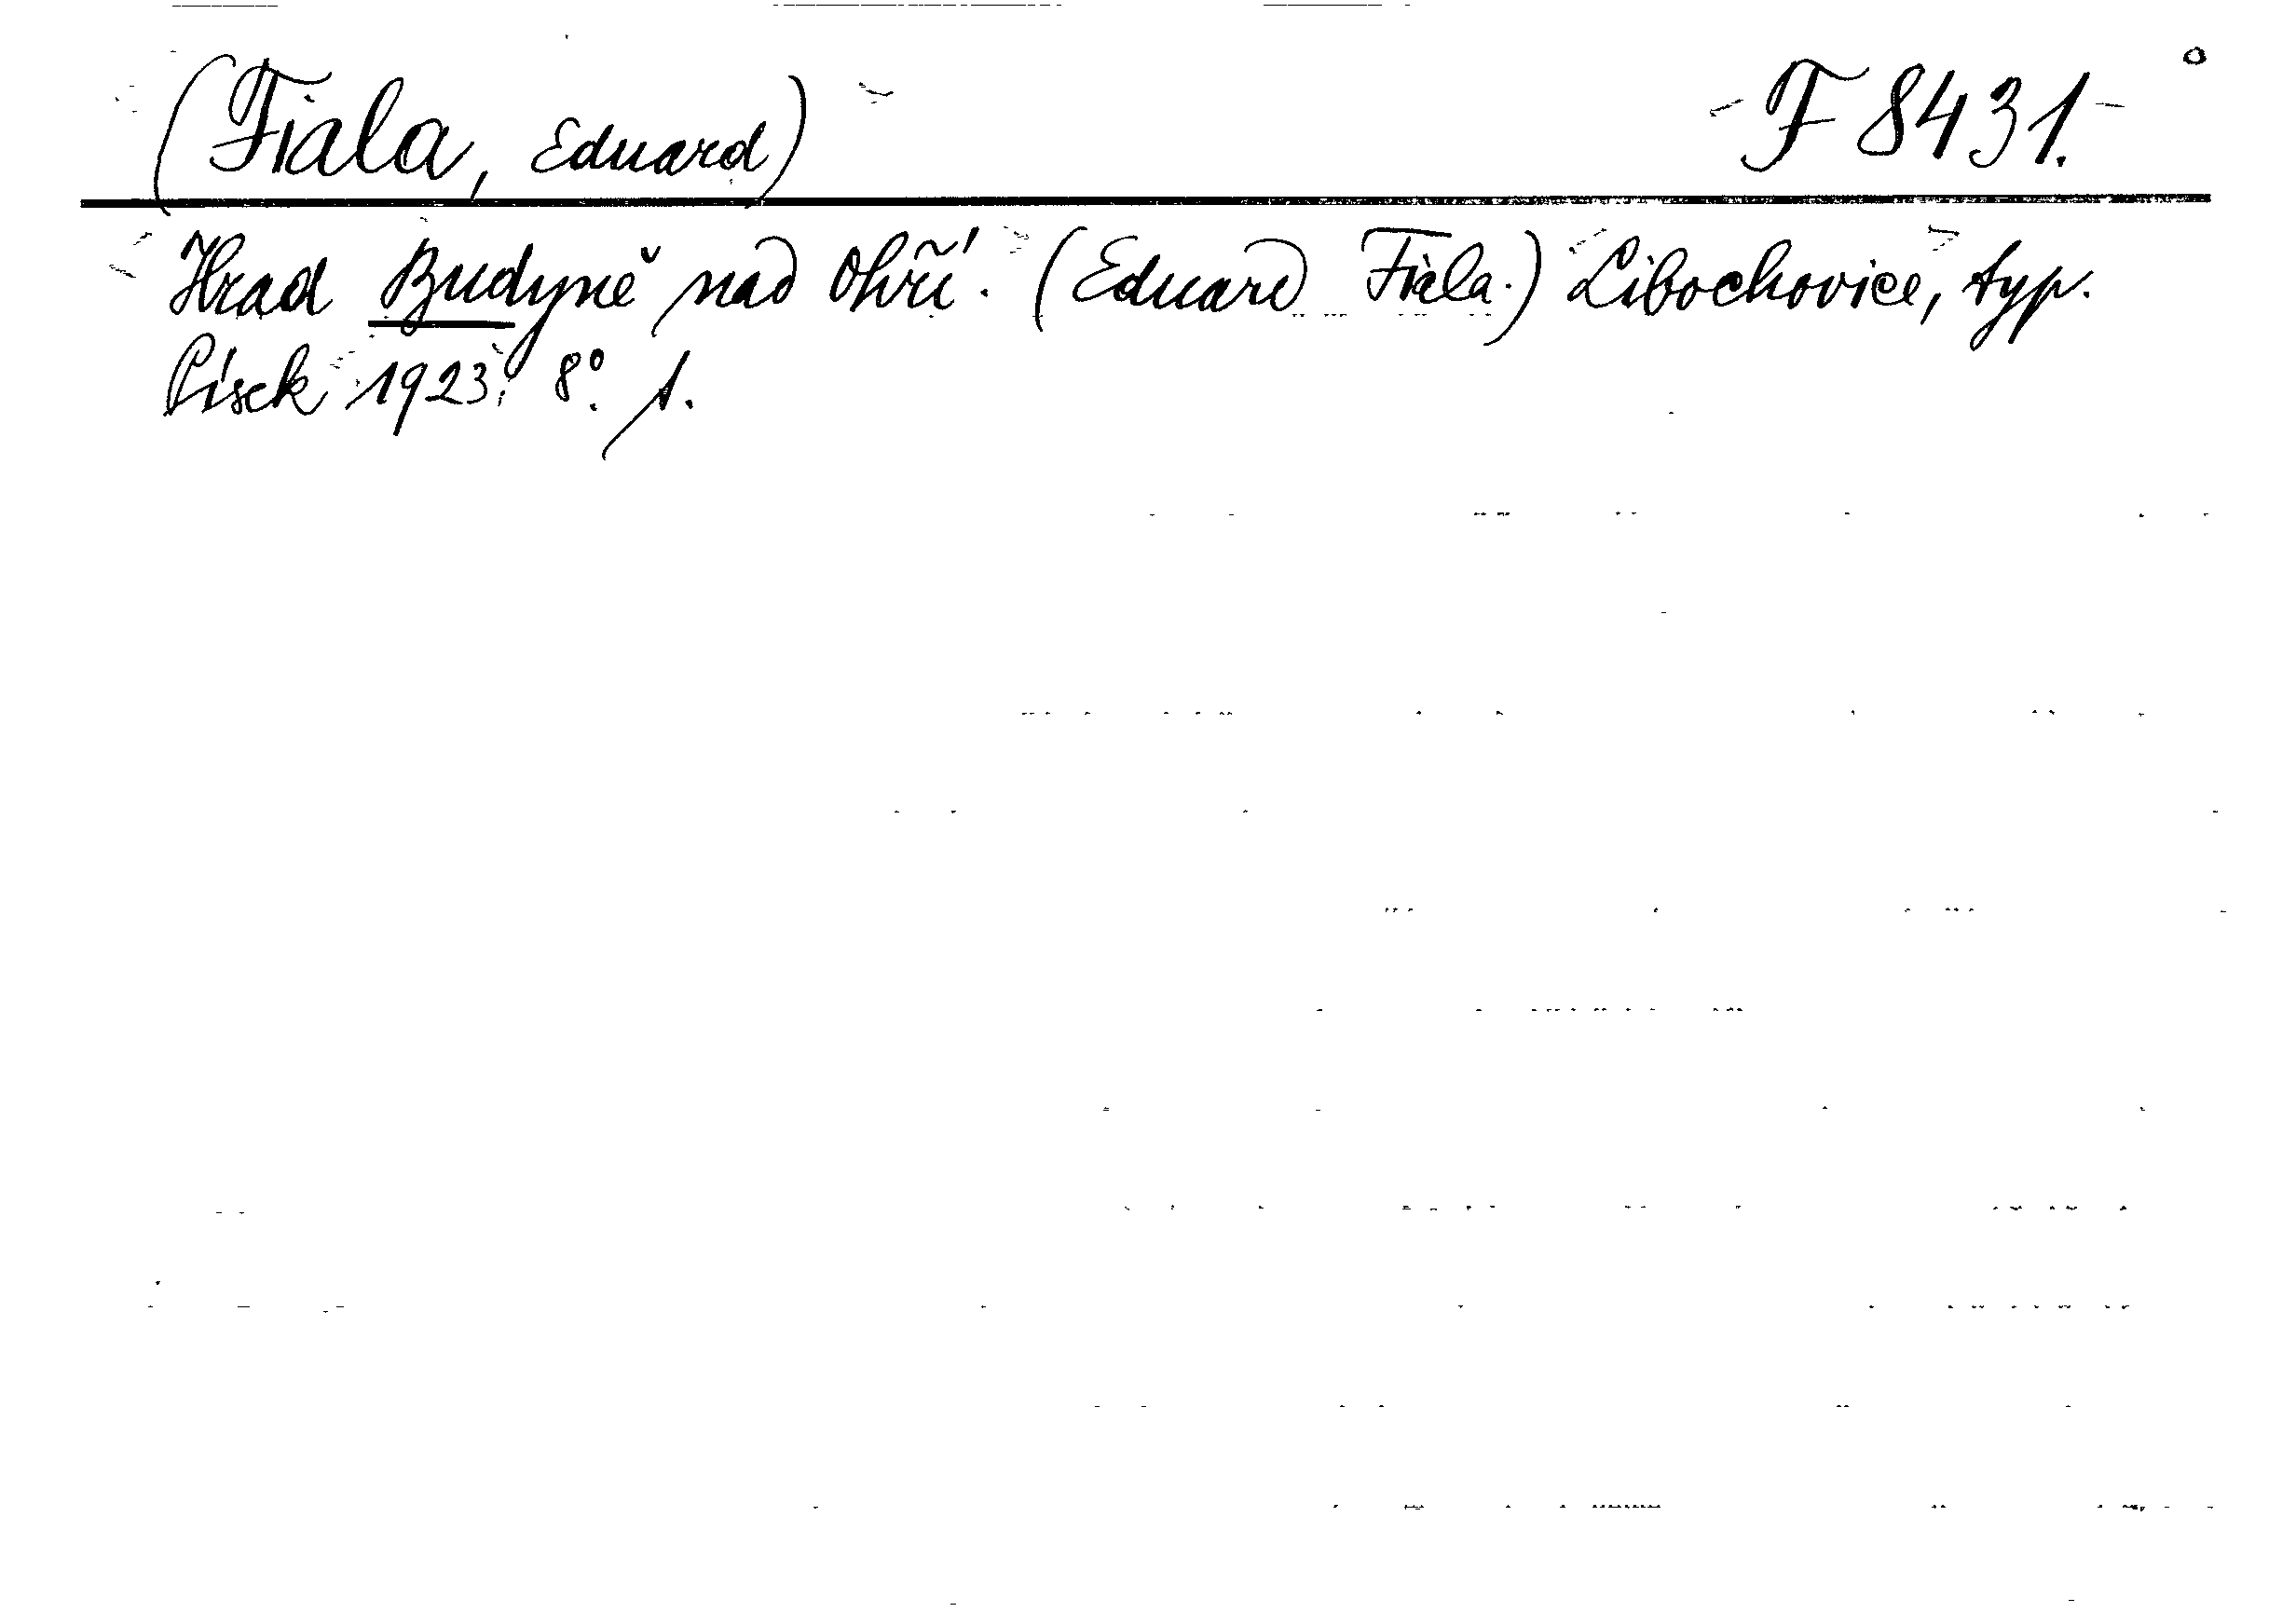 (Fiala, Eduard) F 8431.
Hrad Budyně nad Ohří. (Eduard Fiala.) Libochovice, typ.
Písek 1923. 8°. 1.